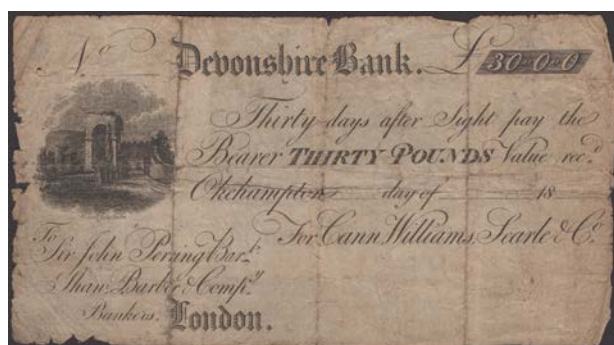 No Devonshire Bank. £ 30-0-0
Thirty days after Sight pay the
Bearer THIRTY POUNDS Value rec.d
Okehampton day of 18
For Cann Williams, Searle & Co.
To
Sir John Perring Bar.t
Shaw, Barber & Comp.y
Bankers. London.